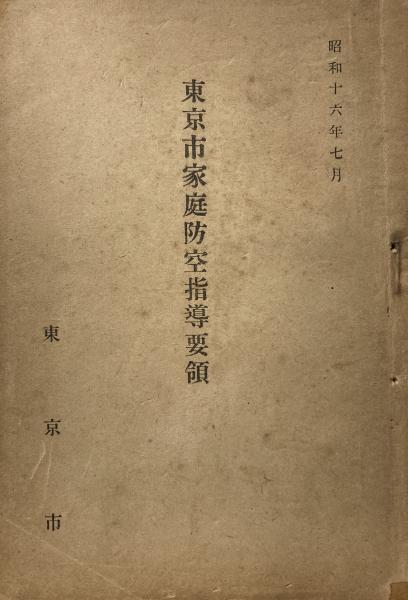 昭和十六年七月
東京市家庭防空指導要領
東京市